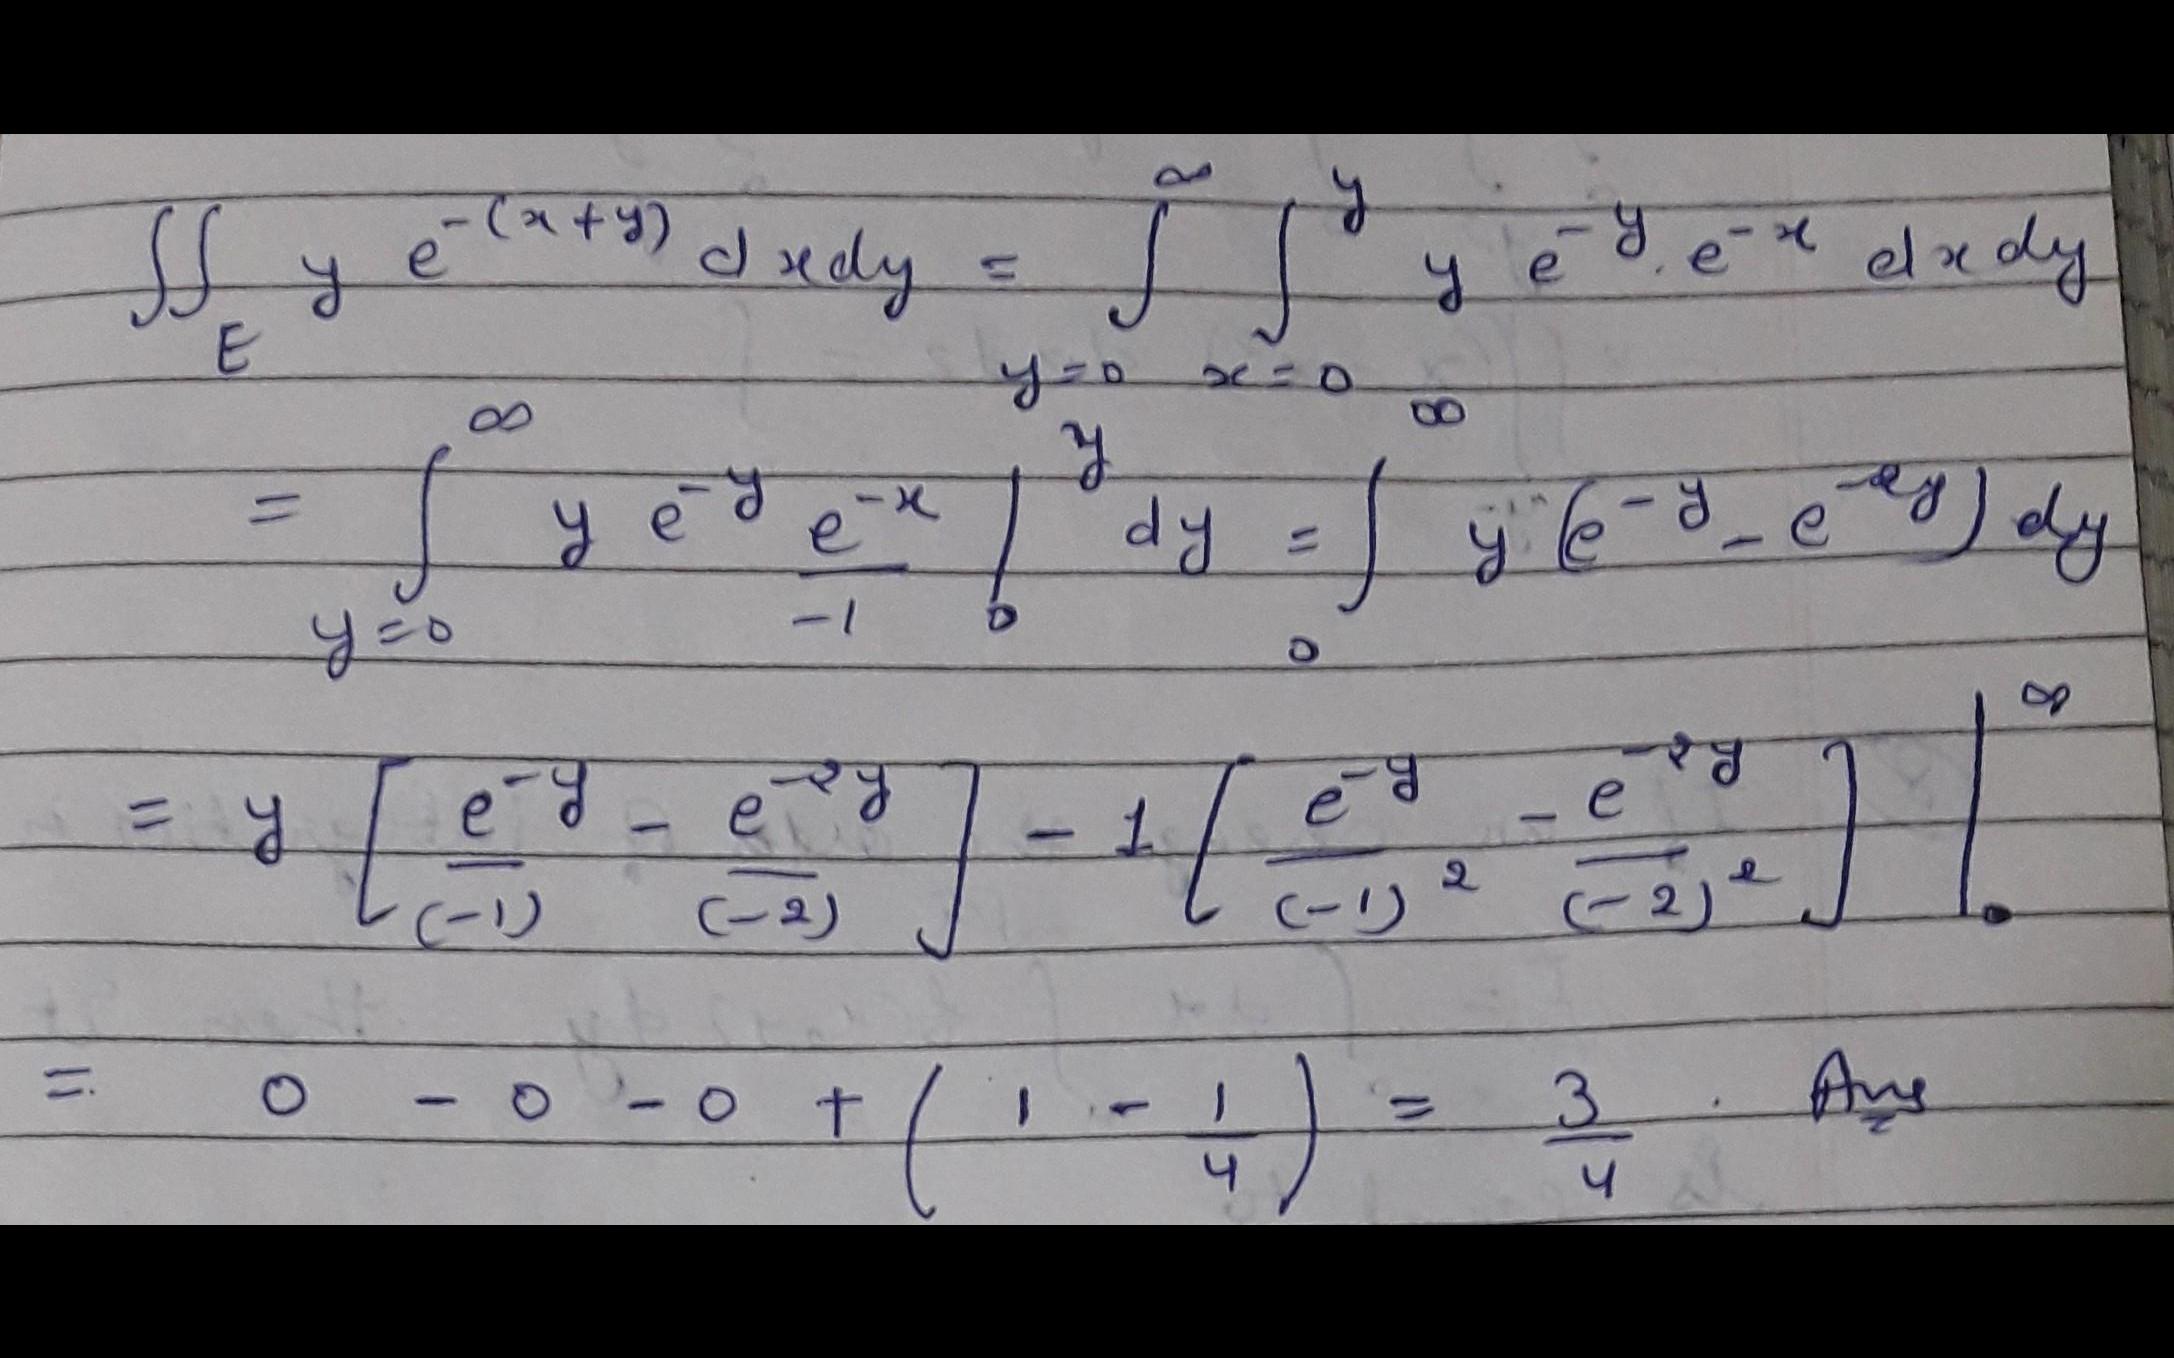 ∬_E y e^{-(x+y)} dxdy = ∫_{y=0}^{∞} ∫_{x=0}^{y} y e^{-y} . e^{-x} dxdy
= ∫_{y=0}^{∞} y e^{-y} \frac{e^{-x}}{-1} |_{0}^{y} dy = ∫_{0}^{∞} y (e^{-y} - e^{-2y}) dy
= y [ \frac{e^{-y}}{(-1)} - \frac{e^{-2y}}{(-2)} ] - 1 [ \frac{e^{-y}}{(-1)^2} - \frac{e^{-2y}}{(-2)^2} ] |_{0}^{∞}
= 0 - 0 - 0 + ( 1 - \frac{1}{4} ) = \frac{3}{4} . Ans